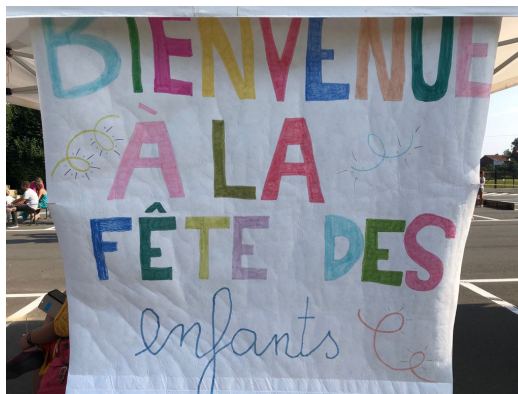 BIENVENUE
À LA
FÊTE DES
enfants